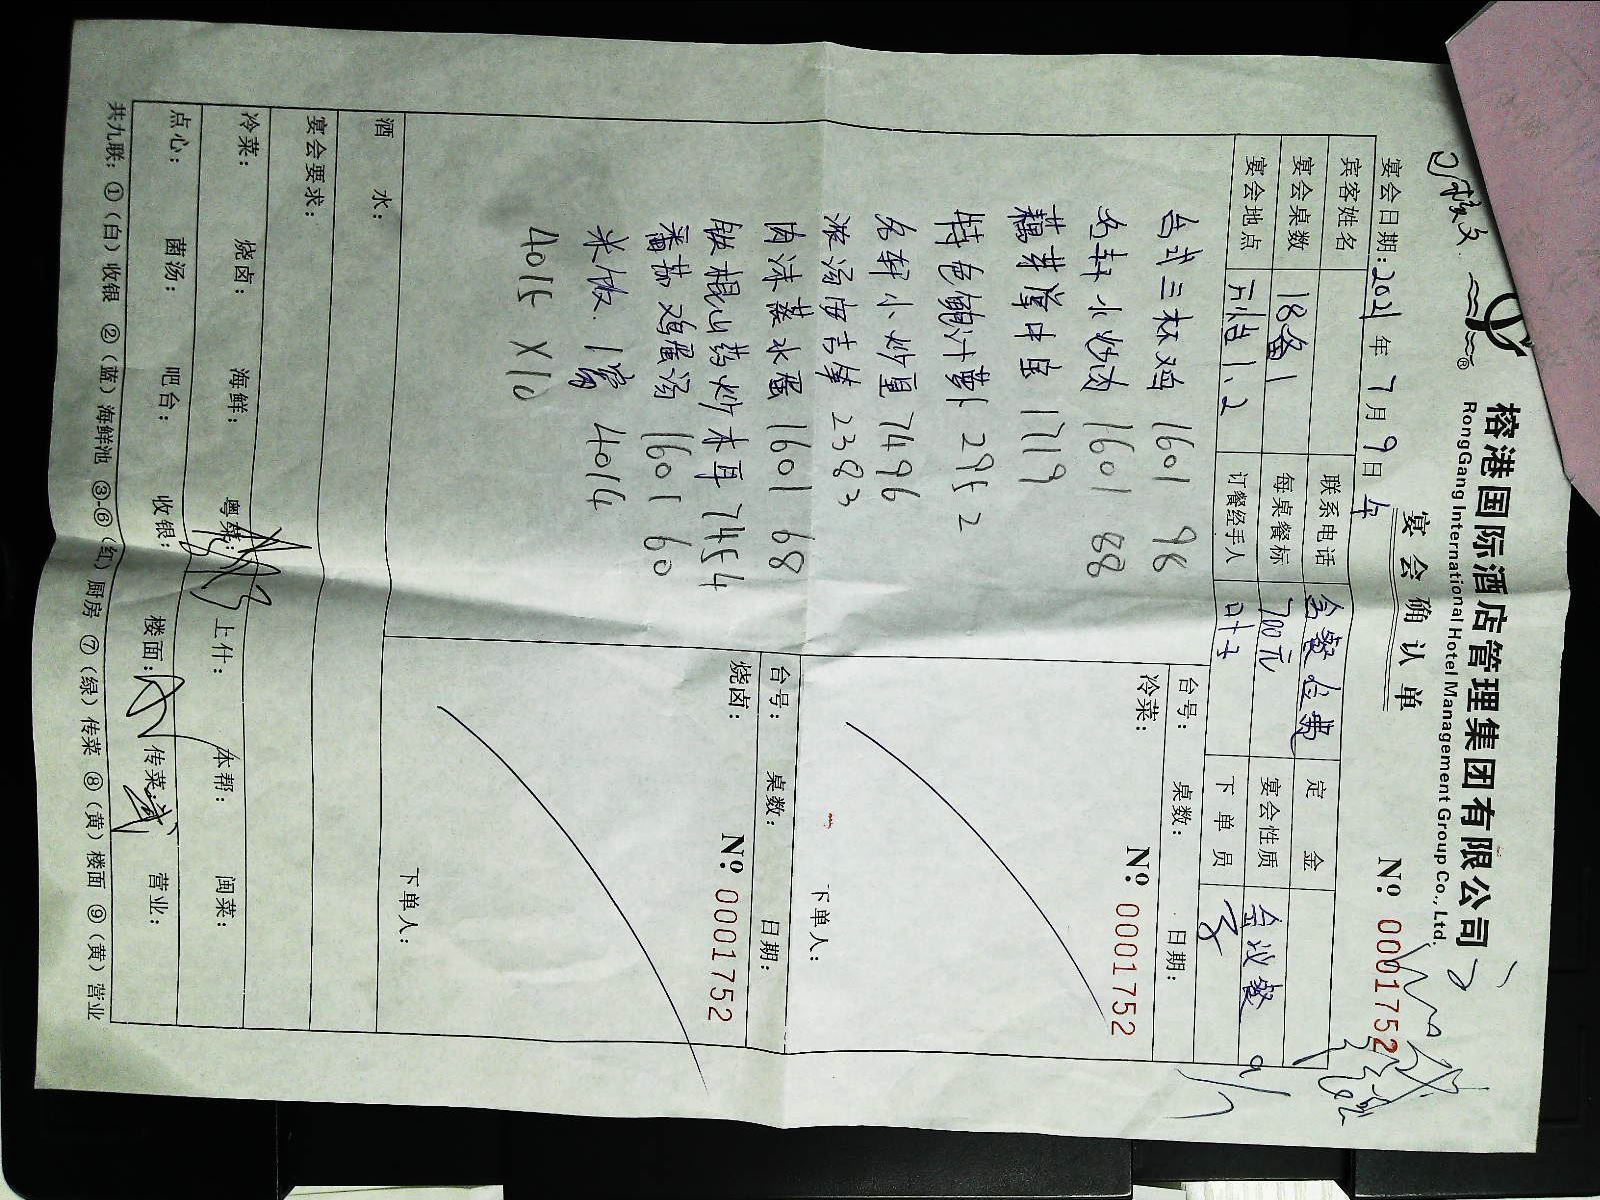 榕港国际酒店管理集团有限公司
RongGang International Hotel Management Group Co., Ltd.
宴会确认单
№ 0001752
宴会日期:2021年7月9日 午
宾客姓名 联系电话 定金
宴会桌数 18备1 每桌餐标 700元 宴会性质 会议餐
宴会地点 1、2 订餐经手人 叶子 下单员
台式三杯鸡 1601 98
名轩小炒肉 1601 88
藕芽 1719
特色鲍汁萝卜 295 2
名轩小炒 7496
浓汤 2383
肉沫蒸水蛋 1601 68
铁棍山药炒木耳 7454
番茄鸡蛋汤 1601 60
米饭 1 4014
4015 X10
台号: 桌数: 日期:
冷菜:
№ 0001752
下单人:
台号: 桌数: 日期:
烧卤:
№ 0001752
下单人:
酒水:
宴会要求:
冷菜: 烧卤: 海鲜: 粤菜: 上什: 本帮: 闽菜:
点心: 菌汤: 吧台: 收银: 楼面: 传菜: 营业:
共九联: ①(白)收银 ②(蓝)海鲜池 ③-⑥(红)厨房 ⑦(绿)传菜 ⑧(黄)楼面 ⑨(黄)营业